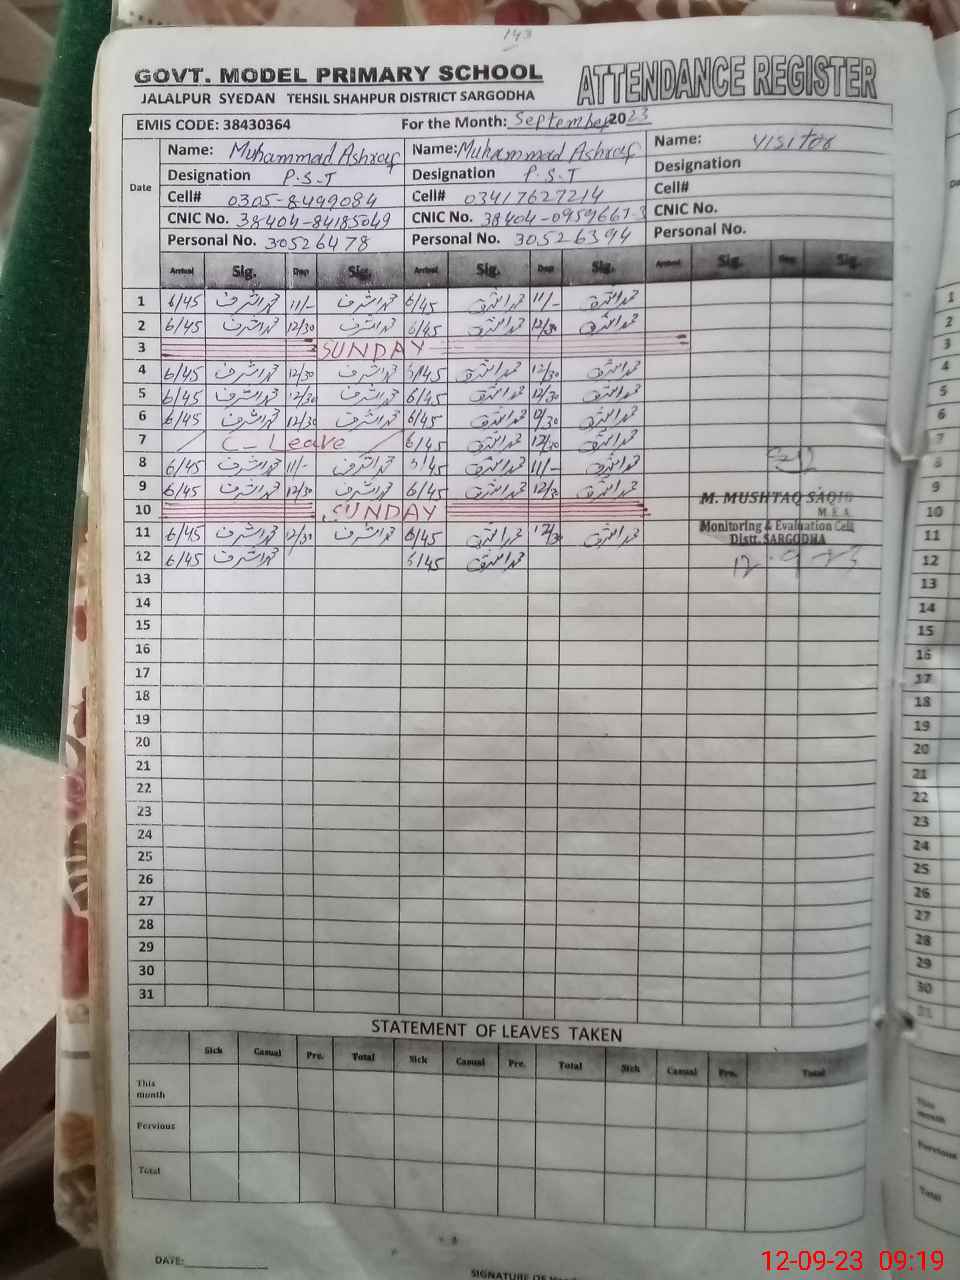 143
GOVT. MODEL PRIMARY SCHOOL ATTENDANCE REGISTER
JALALPUR SYEDAN TEHSIL SHAHPUR DISTRICT SARGODHA
EMIS CODE: 38430364 For the Month: September 2023
Date Name: Muhammad Ashraf Name: Muhammad Ashraf Name: VISITOR
Designation P.S.T Designation P.S.T Designation
Cell# 0305-8499084 Cell# 03417627214 Cell#
CNIC No. 38404-84185049 CNIC No. 38404-0959667-3 CNIC No.
Personal No. 30526478 Personal No. 30526394 Personal No.
Arrival Sig. Dep Sig. Arrival Sig. Dep Sig. Arrival Sig. Dep Sig.
1 6/45 محمد اشرف 11/- محمد اشرف 6/45 محمد اشرف 11/- محمد اشرف
2 6/45 محمد اشرف 12/30 محمد اشرف 6/45 محمد اشرف 12/30 محمد اشرف
3 SUNDAY
4 6/45 محمد اشرف 12/30 محمد اشرف 6/45 محمد اشرف 12/30 محمد اشرف
5 6/45 محمد اشرف 12/30 محمد اشرف 6/45 محمد اشرف 12/30 محمد اشرف
6 6/45 محمد اشرف 12/30 محمد اشرف 6/45 محمد اشرف 12/30 محمد اشرف
7 C-Leave 6/45 محمد اشرف 12/30 محمد اشرف
8 6/45 محمد اشرف 11/- محمد اشرف 6/45 محمد اشرف 11/- محمد اشرف
9 6/45 محمد اشرف 12/30 محمد اشرف 6/45 محمد اشرف 12/30 محمد اشرف
M. MUSHTAQ SAQIB
10 SUNDAY M.E.A
11 6/45 محمد اشرف 12/30 محمد اشرف 6/45 محمد اشرف 12/30 محمد اشرف
Monitoring & Evaluation Cell
Distt. SARGODHA
12 6/45 محمد اشرف 6/45 محمد اشرف 12.9.23
13
14
15
16
17
18
19
20
21
22
23
24
25
26
27
28
29
30
31
STATEMENT OF LEAVES TAKEN
Sick Casual Pre. Total Sick Casual Pre. Total Sick Casual Pre. Total
This month
Pervious
Total
DATE:
SIGNATURE OF
12-09-23 09:19